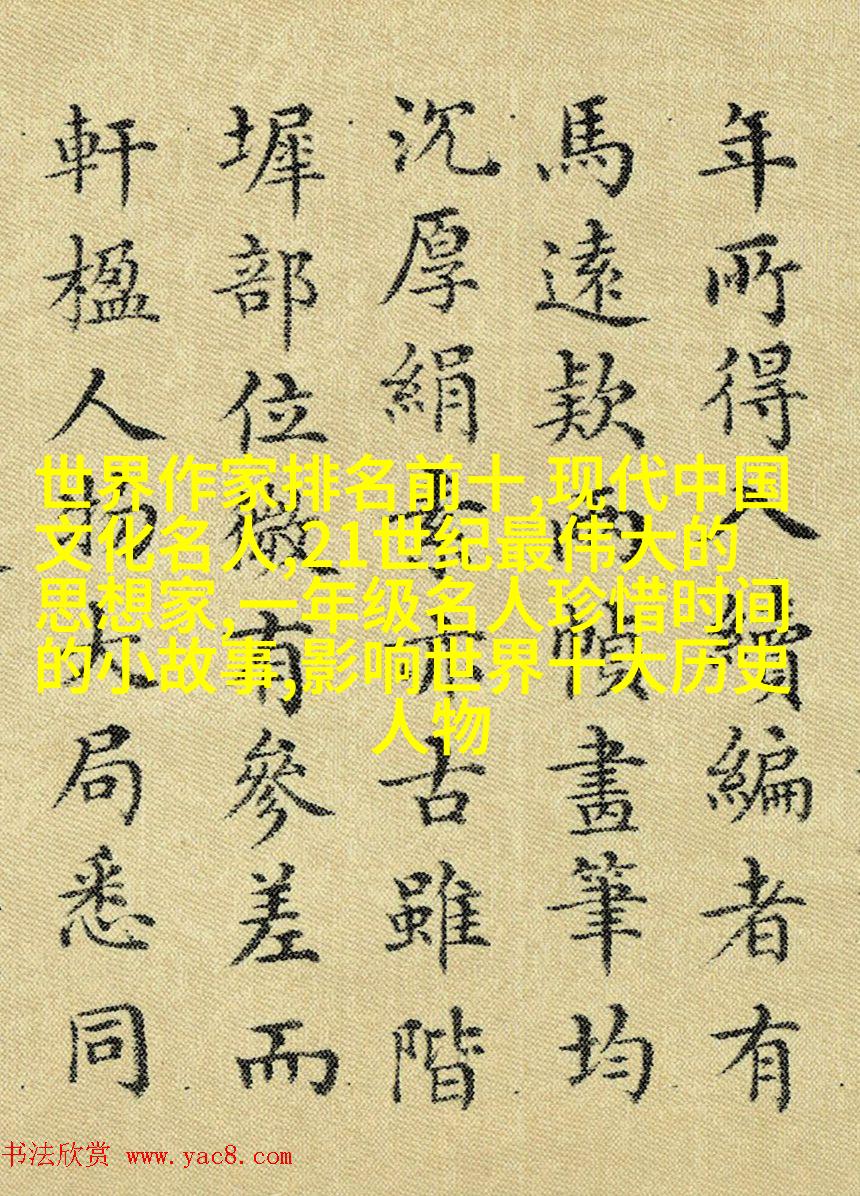 年所得入續編者有
馬遠款兩幀畫筆均
沉厚絹素亦古雖階
墀部位微有參差而
軒楹人物大局悉同
世界作家排名前十,现代中国
文化名人,21世纪最伟大的
思想家,一年级名人珍惜时间
的小故事,影响世界十大历史
人物
书法欣赏 www.yac8.com